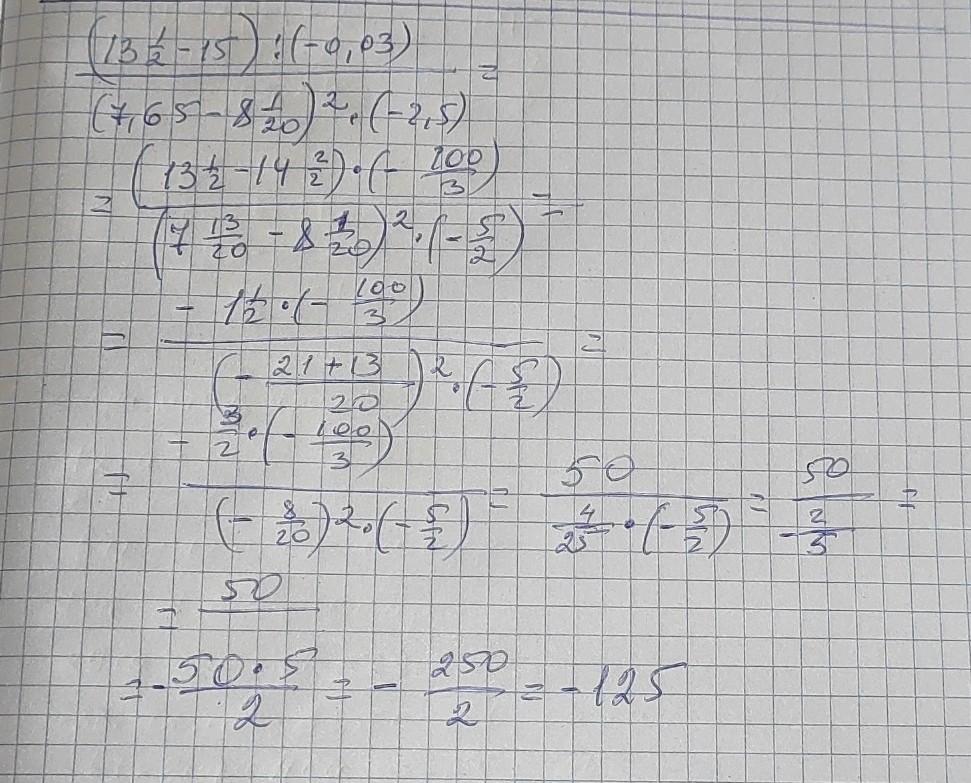 (13 1/2 - 15) : (-0,03)
=
(7,65 - 8 1/20)² · (-2,5)
(13 1/2 - 14 2/2) · (- 100/3)
= =
(7 13/20 - 8 1/20)² · (- 5/2)
- 1 1/2 · (- 100/3)
= =
(- 21 + 13 / 20)² · (- 5/2)
- 3/2 · (- 100/3) 50 50
= = = =
(- 8/20)² · (- 5/2) 4/25 · (- 5/2) - 2/5
= 50
= - 50 · 5 / 2 = - 250/2 = -125